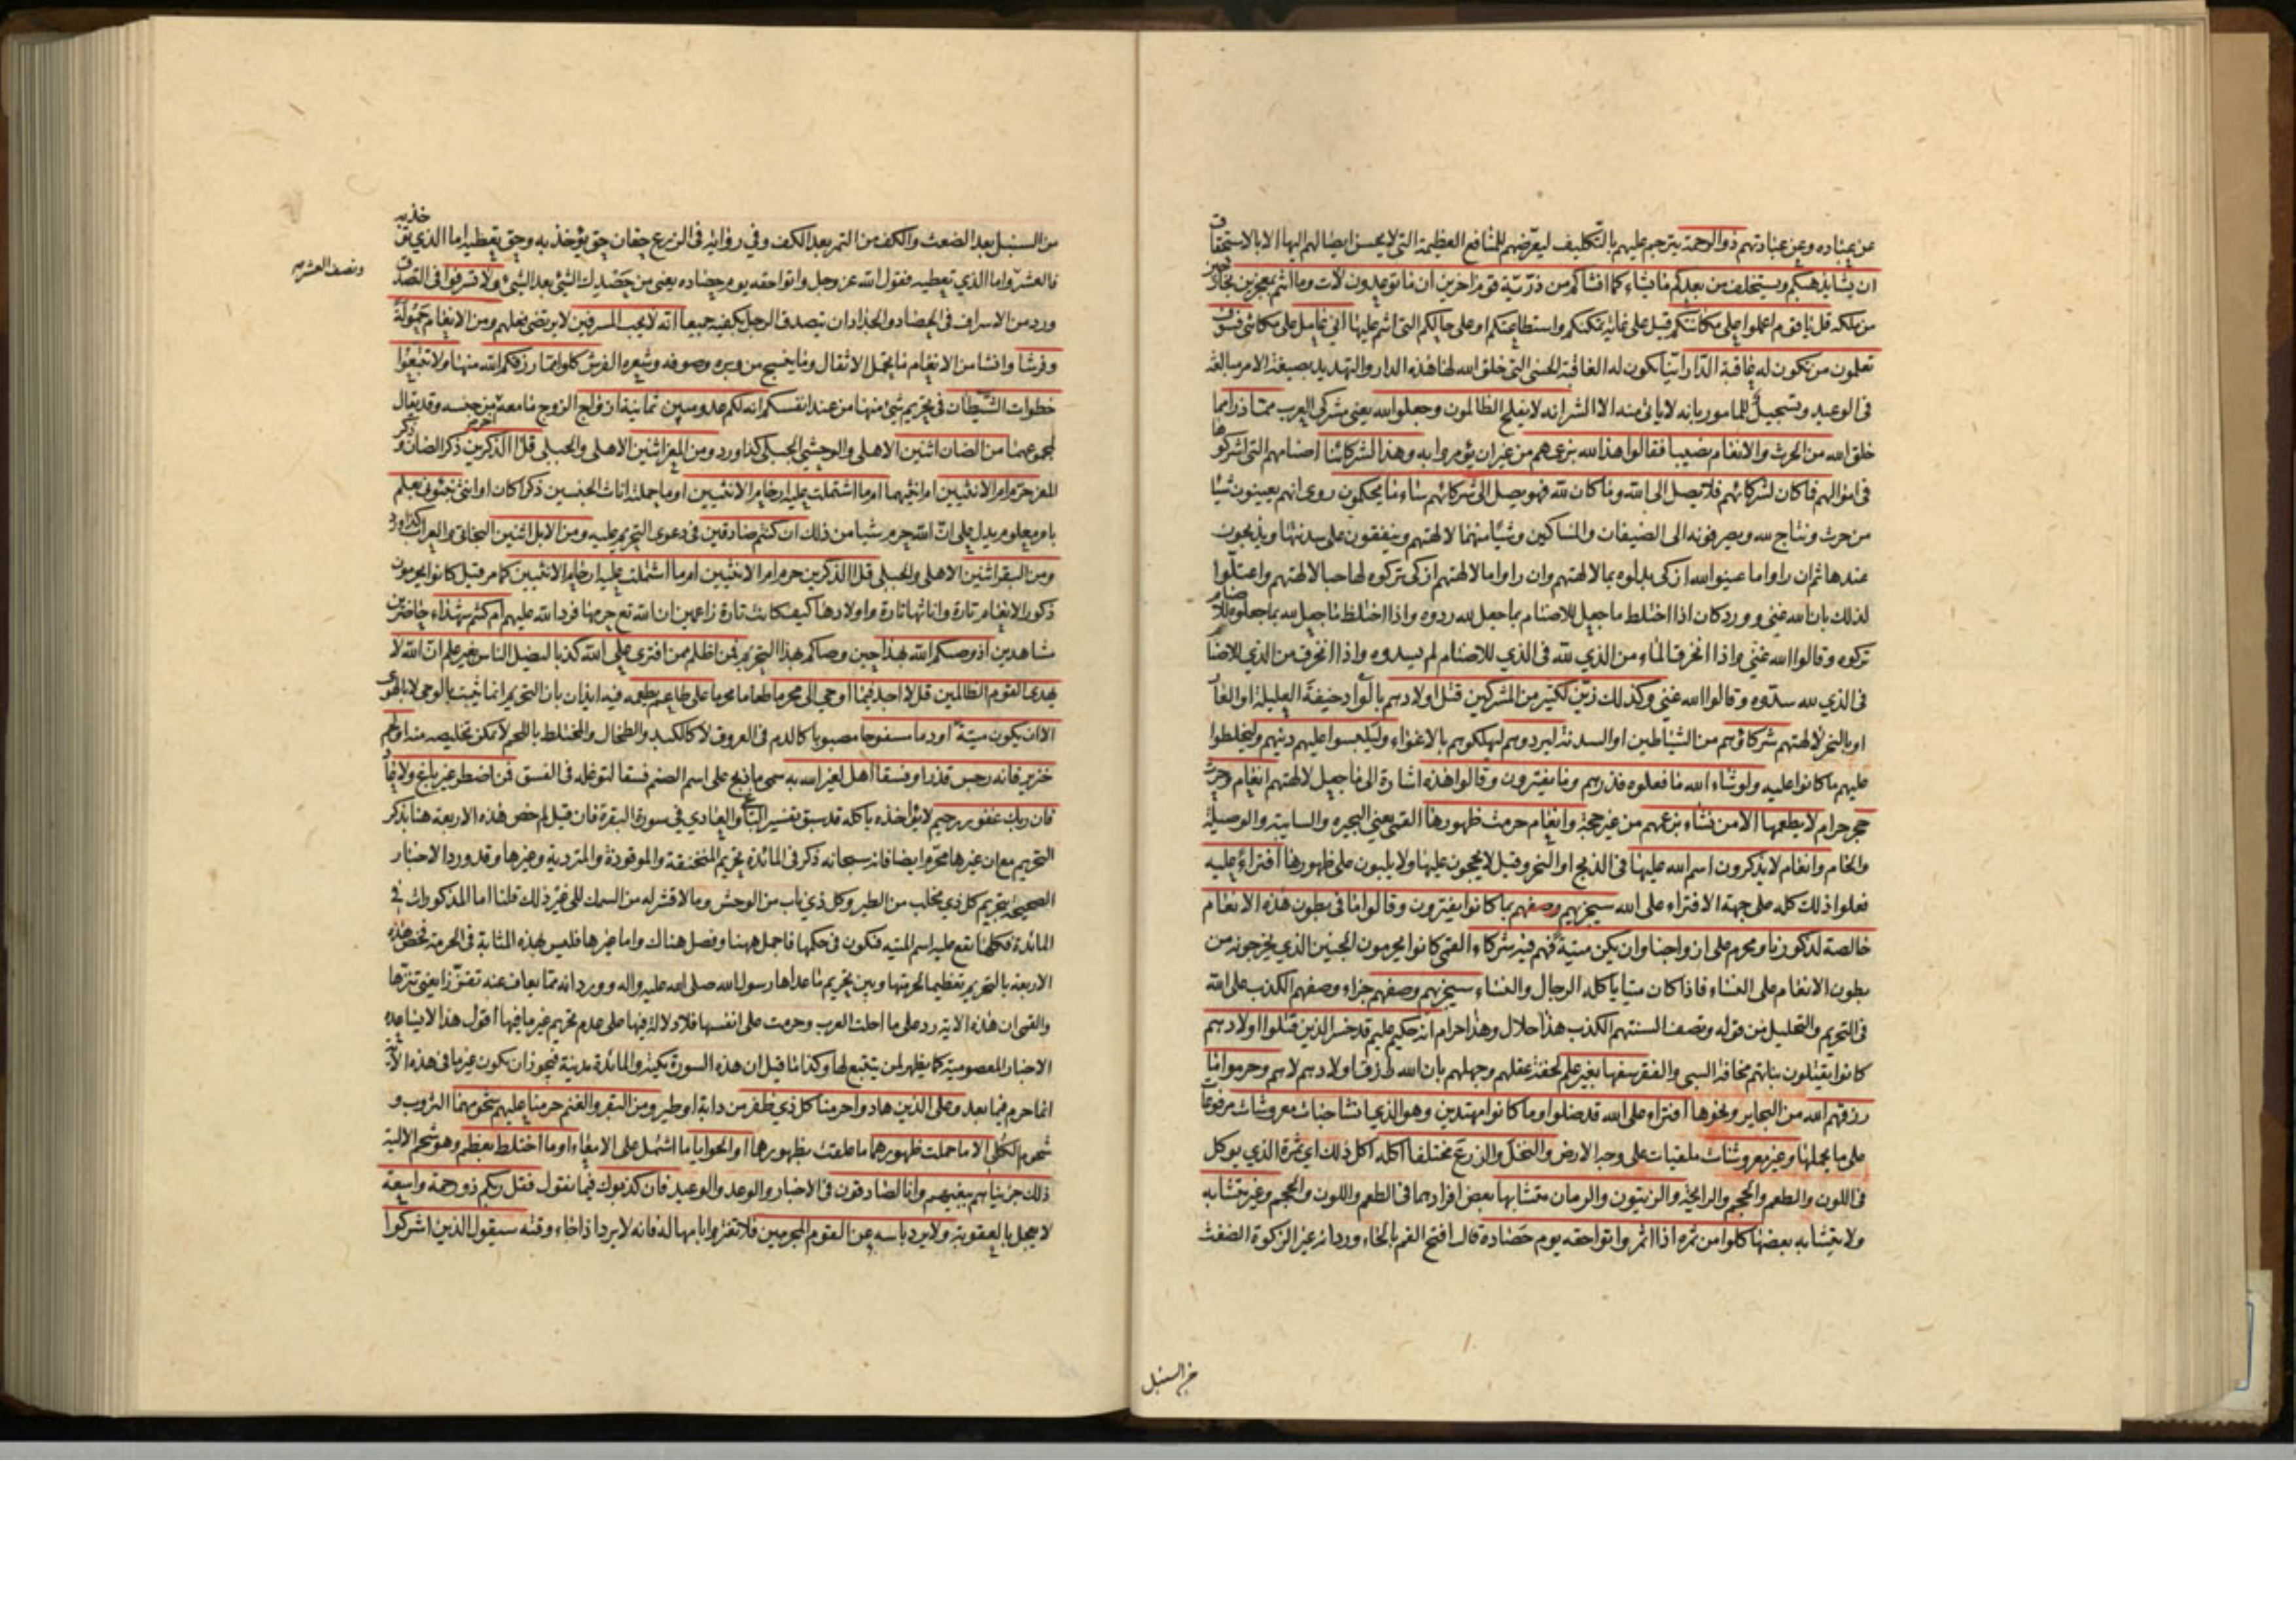 عن عباده وعن عبادتهم ذو الرحمة يترحم عليهم بالتكليف ليعرضهم للمنافع العظيمة التي لا يحسن ايصالهم اليها الا بالاستحقاق
ان يشا يذهبكم ويستخلف من بعدكم ما يشاء كما انشاكم من ذرية قوم اخرين ان ما توعدون لات وما انتم بمعجزين بخارجين
من ملكه قل يا قوم اعملوا على مكانتكم قيل على غاية تمكنكم واستطاعتكم او على حالكم التي انتم عليها اني عامل على مكانتي فسوف
تعلمون من تكون له عاقبة الدار اينا تكون له العاقبة الحسنى التي خلق الله لها هذه الدار والتهديد بصيغة الامر مبالغة
في الوعيد وتسجيل للمامور بانه لا ياتي منه الا الشر انه لا يفلح الظالمون وجعلوا لله يعني مشركي العرب مما ذرا مما
خلق الله من الحرث والانعام نصيبا فقالوا هذا لله بزعمهم من غير ان يؤمروا به وهذا لشركائنا اصنامهم التي اشركوها
في اموالهم فما كان لشركائهم فلا يصل الى الله وما كان لله فهو يصل الى شركائهم ساء ما يحكمون روي انهم يعينون شيئا
من حرث ونتاج لله ويصرفونه الى الضيفان والمساكين وشيئا منهما لالهتهم وينفقون على سدنتها ويذبحون
عندها ثم ان راوا ما عينوا لله ازكى بدلوه بما لالهتهم وان راوا ما لالهتهم ازكى تركوه لها حبا لالهتهم واعتلوا
لذلك بان الله غني وورد كان اذا اختلط ما جعل للاصنام بما جعل لله ردوه واذا اختلط ما جعل لله بما جعلوه للاصنام
تركوه وقالوا الله غني واذا انخرق الماء من الذي لله في الذي للاصنام لم يسدوه واذا انخرق من الذي للاصنام
في الذي لله سدوه وقالوا الله غني وكذلك زين لكثير من المشركين قتل اولادهم بالواد خيفة العيلة او العار
او بالنحر لالهتهم شركاؤهم من الشياطين او السدنة ليردوهم ليهلكوهم بالاغواء وليلبسوا عليهم دينهم وليخلطوا
عليهم ما كانوا عليه ولو شاء الله ما فعلوه فذرهم وما يفترون وقالوا هذه اشارة الى ما جعل لالهتهم انعام وحرث
حجر حرام لا يطعمها الا من نشاء بزعمهم من غير حجة وانعام حرمت ظهورها القمي يعني البحيره والسايبة والوصيلة
والحام وانعام لا يذكرون اسم الله عليها في الذبح او النحر وقيل لا يحجون عليها ولا يلبون على ظهورها افتراء عليه
فعلوا ذلك كله على جهة الافتراء على الله سيجزيهم وصفهم بما كانوا يفترون وقالوا ما في بطون هذه الانعام
خالصة لذكورنا ومحرم على ازواجنا وان يكن ميتة فهم فيه شركاء القمي كانوا يحرمون الجنين الذي يخرجونه من
بطون الانعام على النساء فاذا كان ميتا ياكله الرجال والنساء سيجزيهم وصفهم جزاء وصفهم الكذب على الله
في التحريم والتحليل من قوله وتصف السنتهم الكذب هذا حلال وهذا حرام انه حكيم عليم قد خسر الذين قتلوا اولادهم
كانوا يقتلون بناتهم مخافة السبي والفقر سفها بغير علم لخفة عقلهم وجهلهم بان الله رازق اولادهم لا هم وحرموا ما
رزقهم الله من البحاير ونحوها افتراء على الله قد ضلوا وما كانوا مهتدين وهو الذي انشا جنات معروشات مرفوعات
على ما يحملها وغير معروشات ملقيات على وجه الارض والنخل والزرع مختلفا اكله اكل ذلك اي ثمره الذي يوكل
في اللون والطعم والحجم والرايحة والزيتون والرمان متشابها بعض افرادهما في الطعم واللون والحجم وغير متشابه
ولا يتشابه بعضها كلوا من ثمره اذا اثمر واتوا حقه يوم حصاده قال افتح الفم بالحاء وورد انه غير الزكوة الضغث
من السنبل
من السنبل بعد الضغث والكف من التمر بعد الكف وفي رواية في الزرع حقان حق يؤخذ به وحق تعطيه اما الذي تؤخذ به
فالعشر واما الذي تعطيه فقول الله عز وجل واتوا حقه يوم حصاده يعني من حصدك الشئ بعد الشئ ولا تسرفوا في التصدق
ونصف العشر صح
ورد من الاسراف في الحصاد والجذاذ ان يتصدق الرجل بكفيه جميعا انه لا يحب المسرفين لا يرتضي فعلهم ومن الانعام حمولة
وفرشا وانشا من الانعام ما يحمل الاثقال وما ينسج من وبره وصوفه وشعره الفرش كلوا مما رزقكم الله منها ولا تتبعوا
خطوات الشيطان في تحريم شئ منها من عند انفسكم انه لكم عدو مبين ثمانية ازواج الزوج ما معه اخر من جنسه وقد يقال
لمجموعهما من الضان اثنين الاهلي والوحشي الجبلي كذا ورد ومن المعز اثنين الاهلي والجبلي قل االذكرين ذكر الضان وذكر
المعز حرم ام الانثيين ام انثيهما اما اشتملت عليه ارحام الانثيين او ما حملته اناث الجنسين ذكرا كان او انثى نبئوني بعلم
بامر معلوم يدل على ان الله حرم شيئا من ذلك ان كنتم صادقين في دعوى التحريم عليه ومن الابل اثنين البخاتي والعراب كذا ورد
ومن البقر اثنين الاهلي والجبلي قل االذكرين حرم ام الانثيين اما اشتملت عليه ارحام الانثيين كما مر قيل كانوا يحرمون
ذكور الانعام تارة واناثها تارة واولادها كيف كانت تارة زاعمين ان الله تع حرمها فرد الله عليهم ام كنتم شهداء حاضرين
مشاهدين اذ وصيكم الله بهذا حين وصاكم بهذا التحريم فمن اظلم ممن افترى على الله كذبا ليضل الناس بغير علم ان الله لا
يهدي القوم الظالمين قل لا اجد فيما اوحي الى محرما طعاما محرما على طاعم يطعمه فيه ايذان بان التحريم انما يثبت بالوحي لا بالهوى
الا ان يكون ميتة او دما مسفوحا مصبوبا كالدم في العروق لا كالكبد والطحال والمختلط باللحم لا يمكن تخليصه منه او لحم
خنزير فانه رجس قذر او فسقا اهل لغير الله به سمي ما ذبح على اسم الصنم فسقا لتوغله في الفسق فمن اضطر غير باغ ولا عاد
فان ربك غفور رحيم لا يؤاخذه باكله قد سبق تفسير الباغ والعادي في سورة البقرة فان قيل لم خص هذه الاربعة هنا بذكر
التحريم مع ان غيرها محرم ايضا فانه سبحانه ذكر في المائدة تحريم المنخنقة والموقوذة والمتردية وغيرها وقد ورد الاخبار
الصحيحة بتحريم كل ذي مخلب من الطير وكل ذي ناب من الوحش وما لا قشر له من السمك الى غير ذلك قلنا اما المذكورات في
المائدة فكلها يقع عليه اسم الميتة فتكون في حكمها فاجمل ههنا وفصل هناك واما غيرها فليس بهذه المثابة في الحرمة فخص هذه
الاربعة بالتحريم تعظيما لحرمتها وبين تحريم ما عداها رسول الله صلى الله عليه واله وورد انه مما يعاف عنه تقززا يعني تنزها
والقمي ان هذه الاية رد على ما احلت العرب وحرمت على انفسها فلا دلالة فيها على عدم تحريم غير ما فيها اقول هذا لا يساعده
الاخبار المعصومية كما يظهر لمن يتتبع لها وكذا ما قيل ان هذه السورة مكية والمائدة مدنية فيجوز ان يكون غير ما في هذه الاية
انما حرم فيما بعد وعلى الذين هادوا حرمنا كل ذي ظفر من دابة او طير ومن البقر والغنم حرمنا عليهم شحومهما الثروب و
شحوم الكلى الا ما حملت ظهورهما ما علقت بظهورهما او الحوايا ما اشتمل على الامعاء او ما اختلط بعظم وهو شحم الالية
ذلك جزيناهم ببغيهم وانا لصادقون في الاخبار والوعد والوعيد فان كذبوك فيما نقول فقل ربكم ذو رحمة واسعة
لا يعجل بالعقوبة ولا يرد باسه عن القوم المجرمين فلا تغتروا بامهاله فانه لا يرد اذا جاء وقته سيقول الذين اشركوا